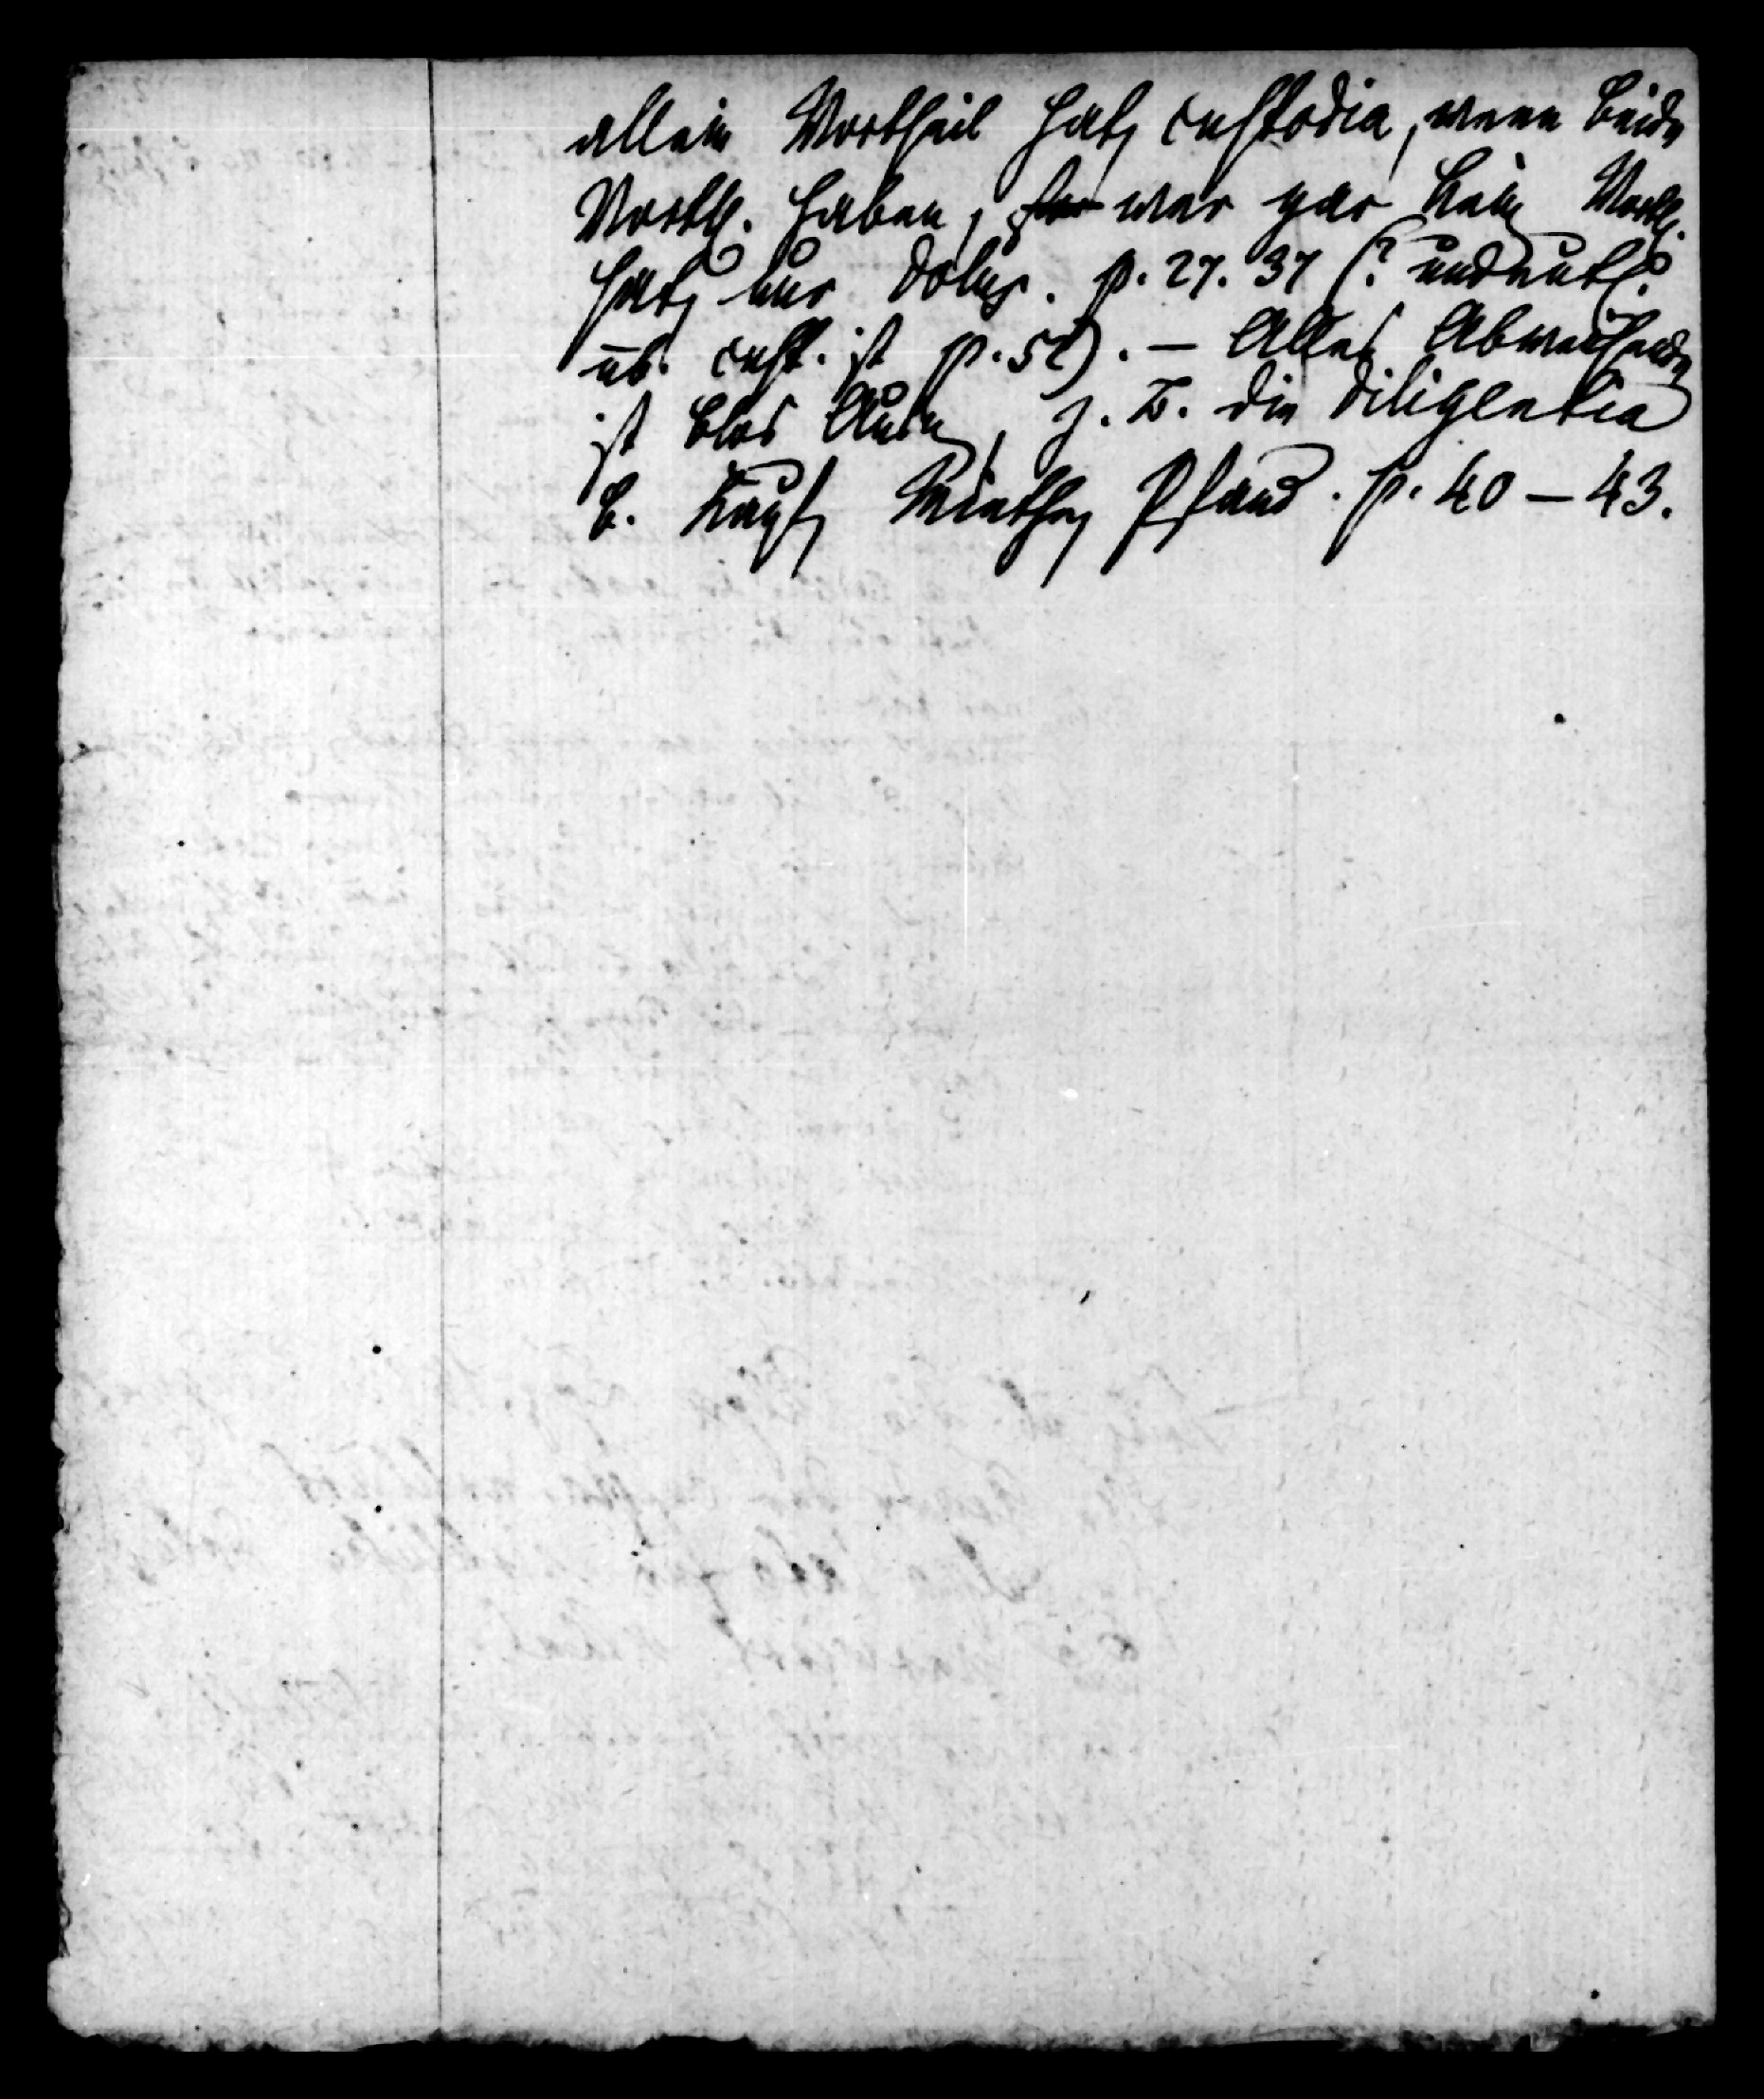 allein Vortheil hat, custodia, wenn beide
Vorth. haben, wer gar kein Vorth.
hat, nur dolus. p. 27. 37 (? undeutl.
üb. cust. ist p. 52). — Alles Abweichende
ist blos z. B. die diligentia
b. Kauf, Miethe, Pfand. p. 40 — 43.